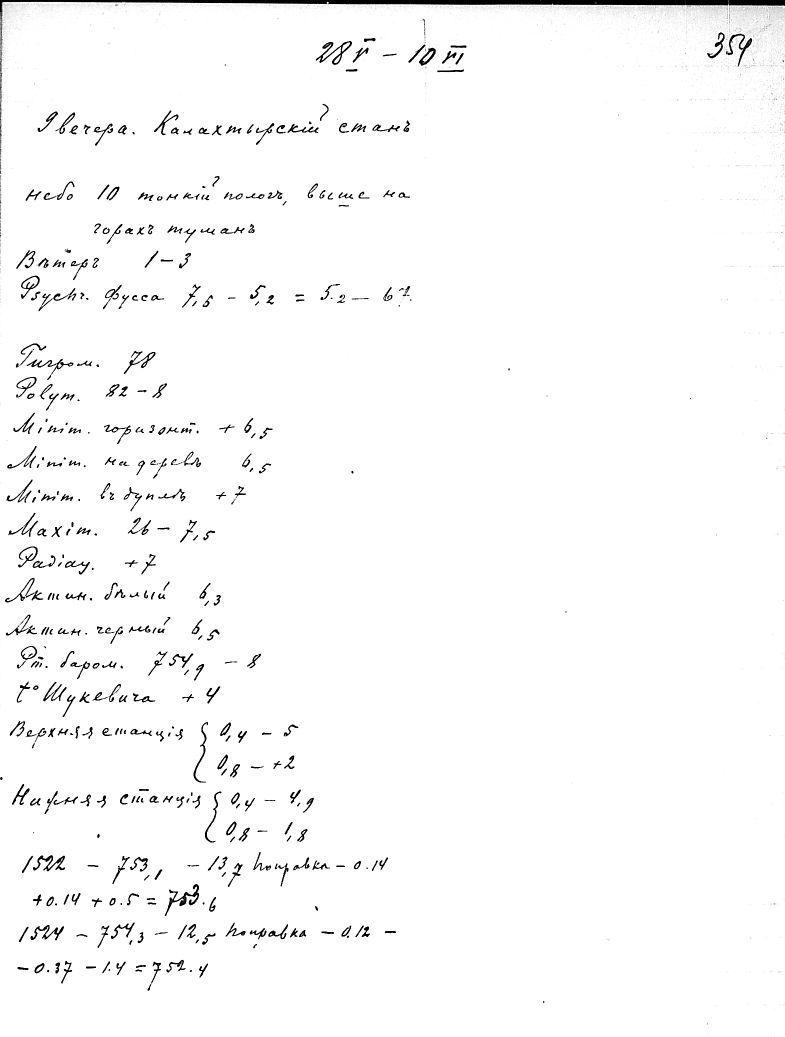 354
28 V – 10 VI
9 вечера. Калахтырскій станъ
небо 10 тонкій пологъ, выше на
горахъ туманъ
Вѣтеръ 1 – 3
Psychr. Фусса 7,5 – 5,2 = 5.2 – 67.
Гигром. 78
Polym. 82 – 8
Minim. горизонт. + 6,5
Minim. на деревѣ 6,5
Minim. въ дуплѣ + 7
Maxim. 26 – 7,5
Радіац. + 7
Актин. бѣлый 6,3
Актин. черный 6,5
Рт. баром. 754,9 – 8
t° Шукевича + 4
Верхняя станція { 0,4 – 5
0,8 – +2
Нижняя станція { 0,4 – 4,9
0,8 – 1,8
1522 – 753,1 – 13,7 поправка – 0.14
+0.14 + 0.5 = 753.6
1524 – 754,3 – 12,5 поправка – 0.12 –
– 0.37 – 1.4 = 752.4